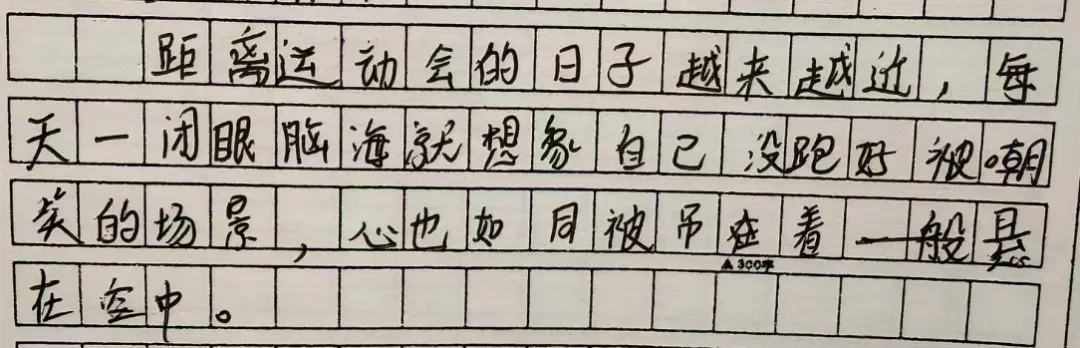 距离运动会的日子越来越近，每
天一闭眼脑海就想象自己没跑好被嘲
笑的场景，心也如同被吊在着一般悬
▲300字
在空中。